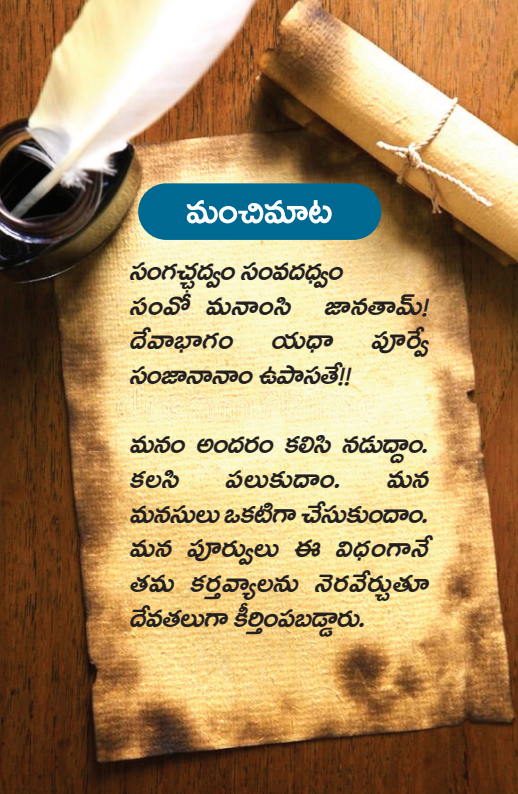 మంచిమాట
సంగచ్ఛద్వం సంవదధ్వం
సంవో మనాంసి జానతామ్!
దేవాభాగం యధా పూర్వే
సంజానానాం ఉపాసతే!!
మనం అందరం కలిసి నడుద్దాం.
కలసి పలుకుదాం. మన
మనసులు ఒకటిగా చేసుకుందాం.
మన పూర్వులు ఈ విధంగానే
తమ కర్తవ్యాలను నెరవేర్చుతూ
దేవతలుగా కీర్తింపబడ్డారు.